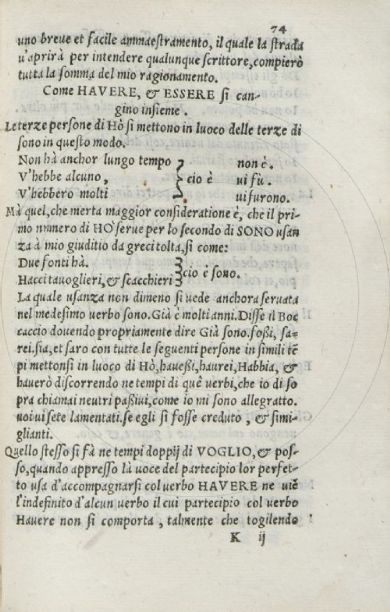 74
uno breue et facile ammaestramento, il quale la strada
u'aprirà per intendere qualunque scrittore, compierò
tutta la somma del mio ragionamento.
Come HAVERE, & ESSERE si can-
gino insieme.
Le terze persone di Hò si mettono in luoco delle terze di
sono in questo modo.
Non hà anchor lungo tempo non è.
V'hebbe alcuno, cio è ui fù.
V'hebbero molti ui furono.
Mà quel, che merta maggior consideratione è, che il pri
mo numero di HO serue per lo secondo di SONO usan
za à mio giuditio da greci tolta, si come:
Due fonti hà.
Hacci tauoglieri, & scacchieri cio è sono.
La quale usanza non dimeno si uede anchora seruata
nel medesimo verbo sono. Già è molti anni. Disse il Boc
caccio douendo propriamente dire Già sono. fossi, sa-
rei. sia, et saro con tutte le seguenti persone in simili tē
pi mettonsi in luoco di Hò, hauessi, haurei, Habbia, &
hauerò discorrendo ne tempi di quē verbi, che io di so
pra chiamai neutri passiui, come io mi sono allegratto.
uoi ui sete lamentati. se egli si fosse creduto, & simi-
glianti.
Quello stesso si fà ne tempi doppij di VOGLIO, & pos-
so, quando appresso là uoce del partecipio lor perfet-
to usa d'accompagnarsi col uerbo HAVERE ne uiē
l'indefinito d'alcun verbo il cui partecipio col uerbo
Hauere non si comporta, talmente che togilendo
K ij